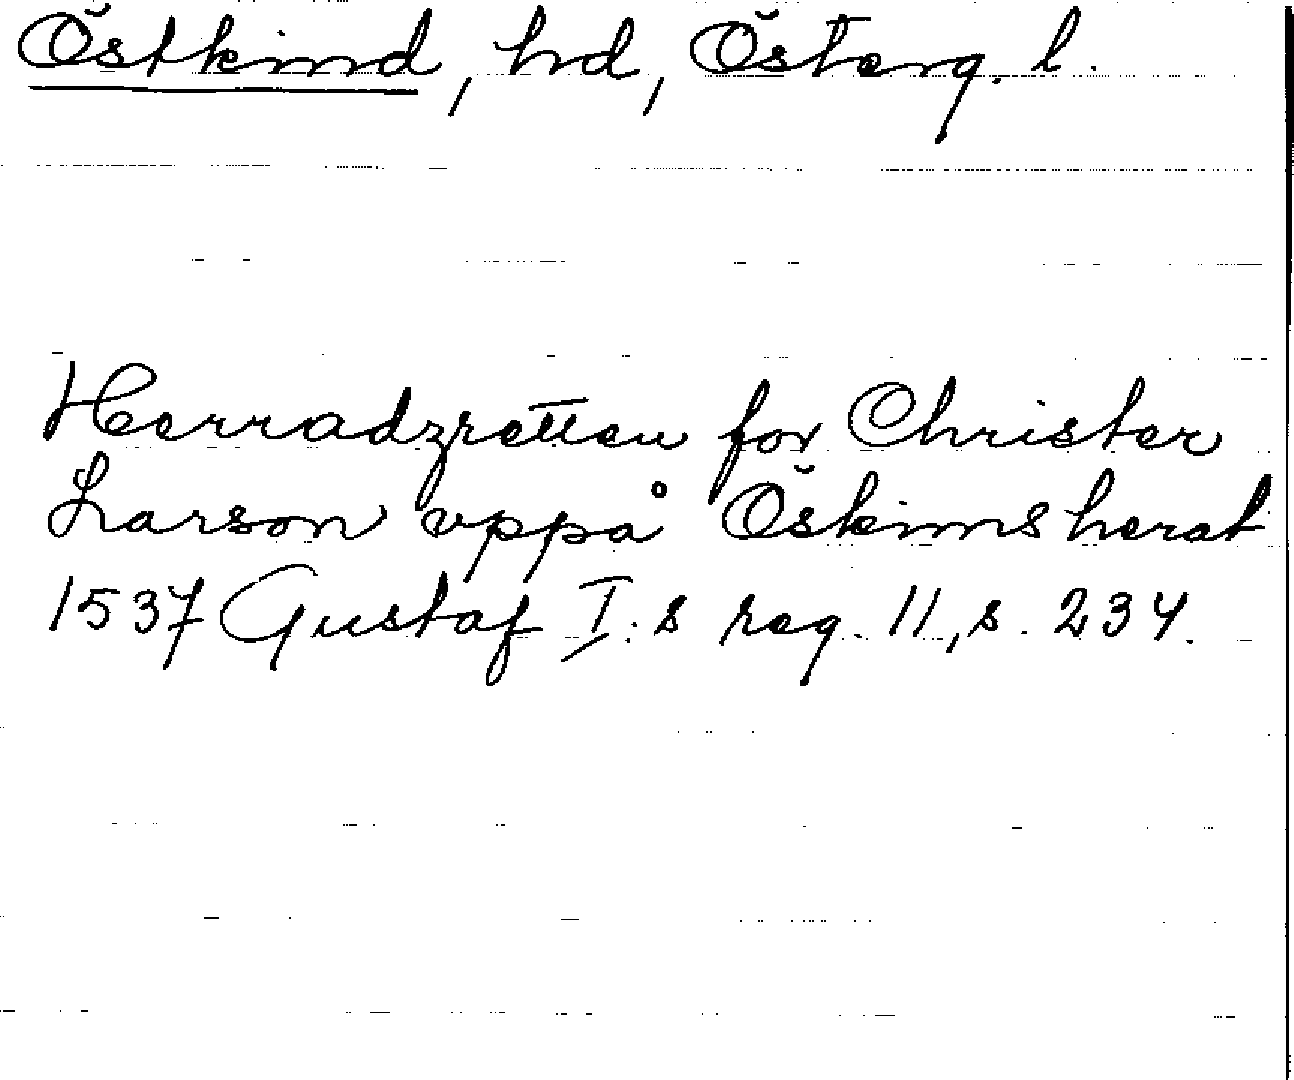 Östkind, hd, Österg. l.
Herradzretten for Christer
Larson vppå Öskinsherat
1537 Gustaf I:s reg. 11, s. 234.